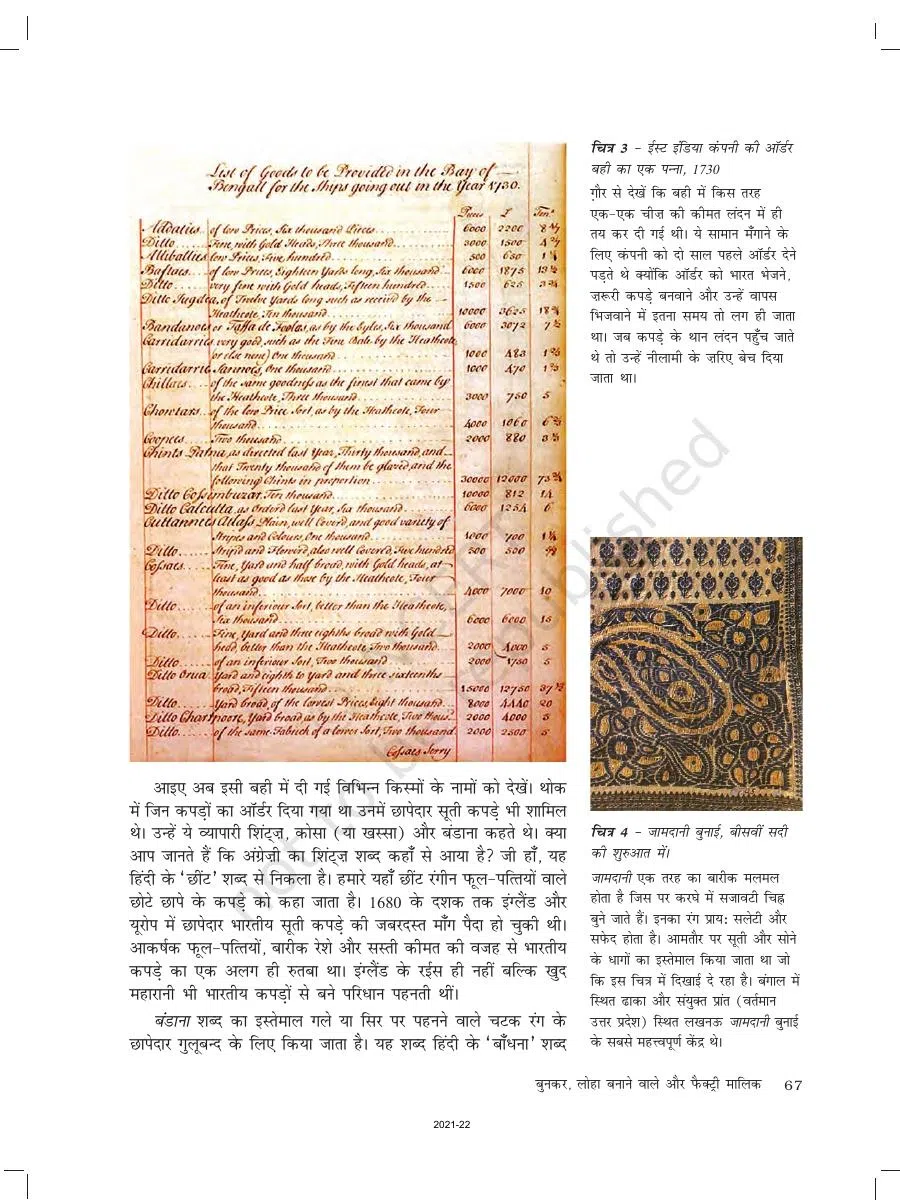 चित्र 3 – ईस्ट इंडिया कंपनी की ऑर्डर
बही का एक पन्ना, 1730
ग़ौर से देखें कि बही में किस तरह
एक-एक चीज़ की कीमत लंदन में ही
तय कर दी गई थी। ये सामान मँगाने के
लिए कंपनी को दो साल पहले ऑर्डर देने
पड़ते थे क्योंकि ऑर्डर को भारत भेजने,
ज़रूरी कपड़े बनवाने और उन्हें वापस
भिजवाने में इतना समय तो लग ही जाता
था। जब कपड़े के थान लंदन पहुँच जाते
थे तो उन्हें नीलामी के ज़रिए बेच दिया
जाता था।
List of Goods to be Provided in the Bay of
Bengall for the Ships going out in the Year 1730.
Pieces £ Tons
Addaties of low Prices, Six thousand Pieces 6000 2200
Ditto Fine, with Gold Heads, Three thousand 3000 1500
Alliballies low Prices, Five hundred 500 650
Baftaes of low Prices, Eighteen Yards long, Six thousand 6000 1875
Ditto very fine with Gold heads, Fifteen hundred 1500 625
Ditto Jugdea, of Twelve Yards long such as receiv'd by the
Heathcote, Ten thousand 10000 3625
Bandanoes or Taffa de Foolas, as by the Eyles, Six thousand 6000 3072
Carridarries very good, such as the Fine Bale by the Heathcote
or else none) One thousand 1000 483
Carridarrie Sannoes, One thousand 1000 470
Chillaes of the same goodness as the finest that came by
the Heathcote, Three thousand 3000 750 5
Chowtars of the low Price Sort, as by the Heathcote, Four
thousand 4000 1060
Coopees Two thousand 2000 880
Chints Patna, as directed last Year, Thirty thousand, and
that Twenty thousand of them be glazed, and the
following Chints in proportion 30000 12000
Ditto Cossimbuzar, Ten thousand 10000 812 14
Ditto Calcutta, as Orderd last Year, Six thousand 6000 1254 6
Cuttannees Atlass, Plain, well Coverd, and good variety of
Stripes and Colours, One thousand 1000 700
Ditto Stripd and Flowerd, also well Covered, Five hundred 500 500
Cossaes Fine, Yard and half broad, with Gold heads, at
least as good as those by the Heathcote, Four
thousand 4000 7000 10
Ditto of an inferiour Sort, better than the Heathcote,
Six thousand 6000 6000 15
Ditto Fine, Yard and three eighths broad with Gold
head, better than the Heathcote, Two thousand 2000 4000 5
Ditto of an inferiour Sort, Two thousand 2000 1750 5
Ditto Orua Yard and eighth to Yard and three sixteenths
broad, Fifteen thousand 15000 12750 37½
Ditto Yard broad, of the lowest Prices, Eight thousand 8000 4440 20
Ditto Chartpoore, Yard broad as by the Heathcote, Two thous 2000 4000 5
Ditto of the same Fabrick of a lower Sort, Two thousand 2000 2500 5
Cossaes Serry
आइए अब इसी बही में दी गई विभिन्न किस्मों के नामों को देखें। थोक
में जिन कपड़ों का ऑर्डर दिया गया था उनमें छापेदार सूती कपड़े भी शामिल
थे। उन्हें ये व्यापारी शिंट्ज़, कोसा (या खस्सा) और बंडाना कहते थे। क्या
आप जानते हैं कि अंग्रेज़ी का शिंट्ज़ शब्द कहाँ से आया है? जी हाँ, यह
हिंदी के 'छींट' शब्द से निकला है। हमारे यहाँ छींट रंगीन फूल-पत्तियों वाले
छोटे छापे के कपड़े को कहा जाता है। 1680 के दशक तक इंग्लैंड और
यूरोप में छापेदार भारतीय सूती कपड़े की जबरदस्त माँग पैदा हो चुकी थी।
आकर्षक फूल-पत्तियों, बारीक रेशे और सस्ती कीमत की वजह से भारतीय
कपड़े का एक अलग ही रुतबा था। इंग्लैंड के रईस ही नहीं बल्कि खुद
महारानी भी भारतीय कपड़ों से बने परिधान पहनती थीं।
बंडाना शब्द का इस्तेमाल गले या सिर पर पहनने वाले चटक रंग के
छापेदार गुलूबन्द के लिए किया जाता है। यह शब्द हिंदी के 'बाँधना' शब्द
चित्र 4 – जामदानी बुनाई, बीसवीं सदी
की शुरुआत में।
जामदानी एक तरह का बारीक मलमल
होता है जिस पर करघे में सजावटी चिह्न
बुने जाते हैं। इनका रंग प्रायः सलेटी और
सफेद होता है। आमतौर पर सूती और सोने
के धागों का इस्तेमाल किया जाता था जो
कि इस चित्र में दिखाई दे रहा है। बंगाल में
स्थित ढाका और संयुक्त प्रांत (वर्तमान
उत्तर प्रदेश) स्थित लखनऊ जामदानी बुनाई
के सबसे महत्त्वपूर्ण केंद्र थे।
बुनकर, लोहा बनाने वाले और फैक्ट्री मालिक 67
2021-22